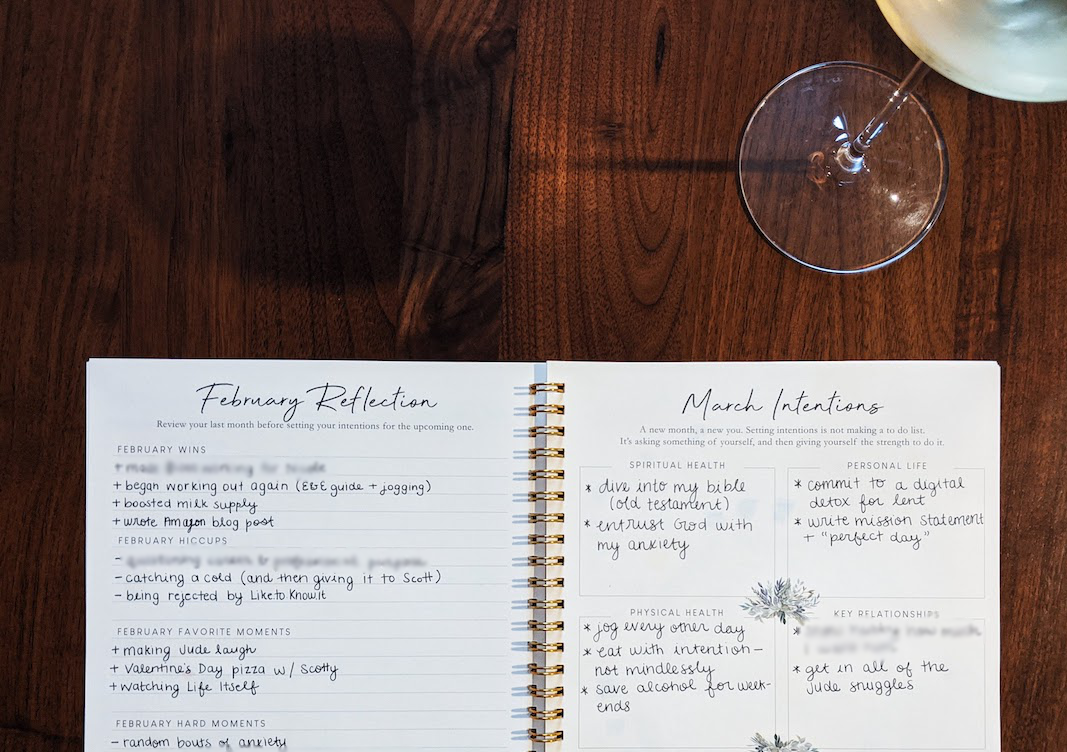 February Reflection
Review your last month before setting your intentions for the upcoming one.
FEBRUARY WINS
+ began working out again (E&E guide + jogging)
+ boosted milk supply
+ wrote Amazon blog post
FEBRUARY HICCUPS
- catching a cold (and then giving it to Scott)
- being rejected by LiketoKnowit
FEBRUARY FAVORITE MOMENTS
+ making Jude laugh
+ Valentine's Day pizza w/ Scotty
+ watching Life Itself
FEBRUARY HARD MOMENTS
- random bouts of anxiety
March Intentions
A new month, a new you. Setting intentions is not making a to do list.
It's asking something of yourself, and then giving yourself the strength to do it.
SPIRITUAL HEALTH
* dive into my bible
(old testament)
* entrust God with
my anxiety
PERSONAL LIFE
* commit to a digital
detox for lent
* write mission statement
+ "perfect day"
PHYSICAL HEALTH
* jog every other day
* eat with intention -
not mindlessly
* save alcohol for week-
ends
KEY RELATIONSHIPS
*
* get in all of the
Jude snuggles